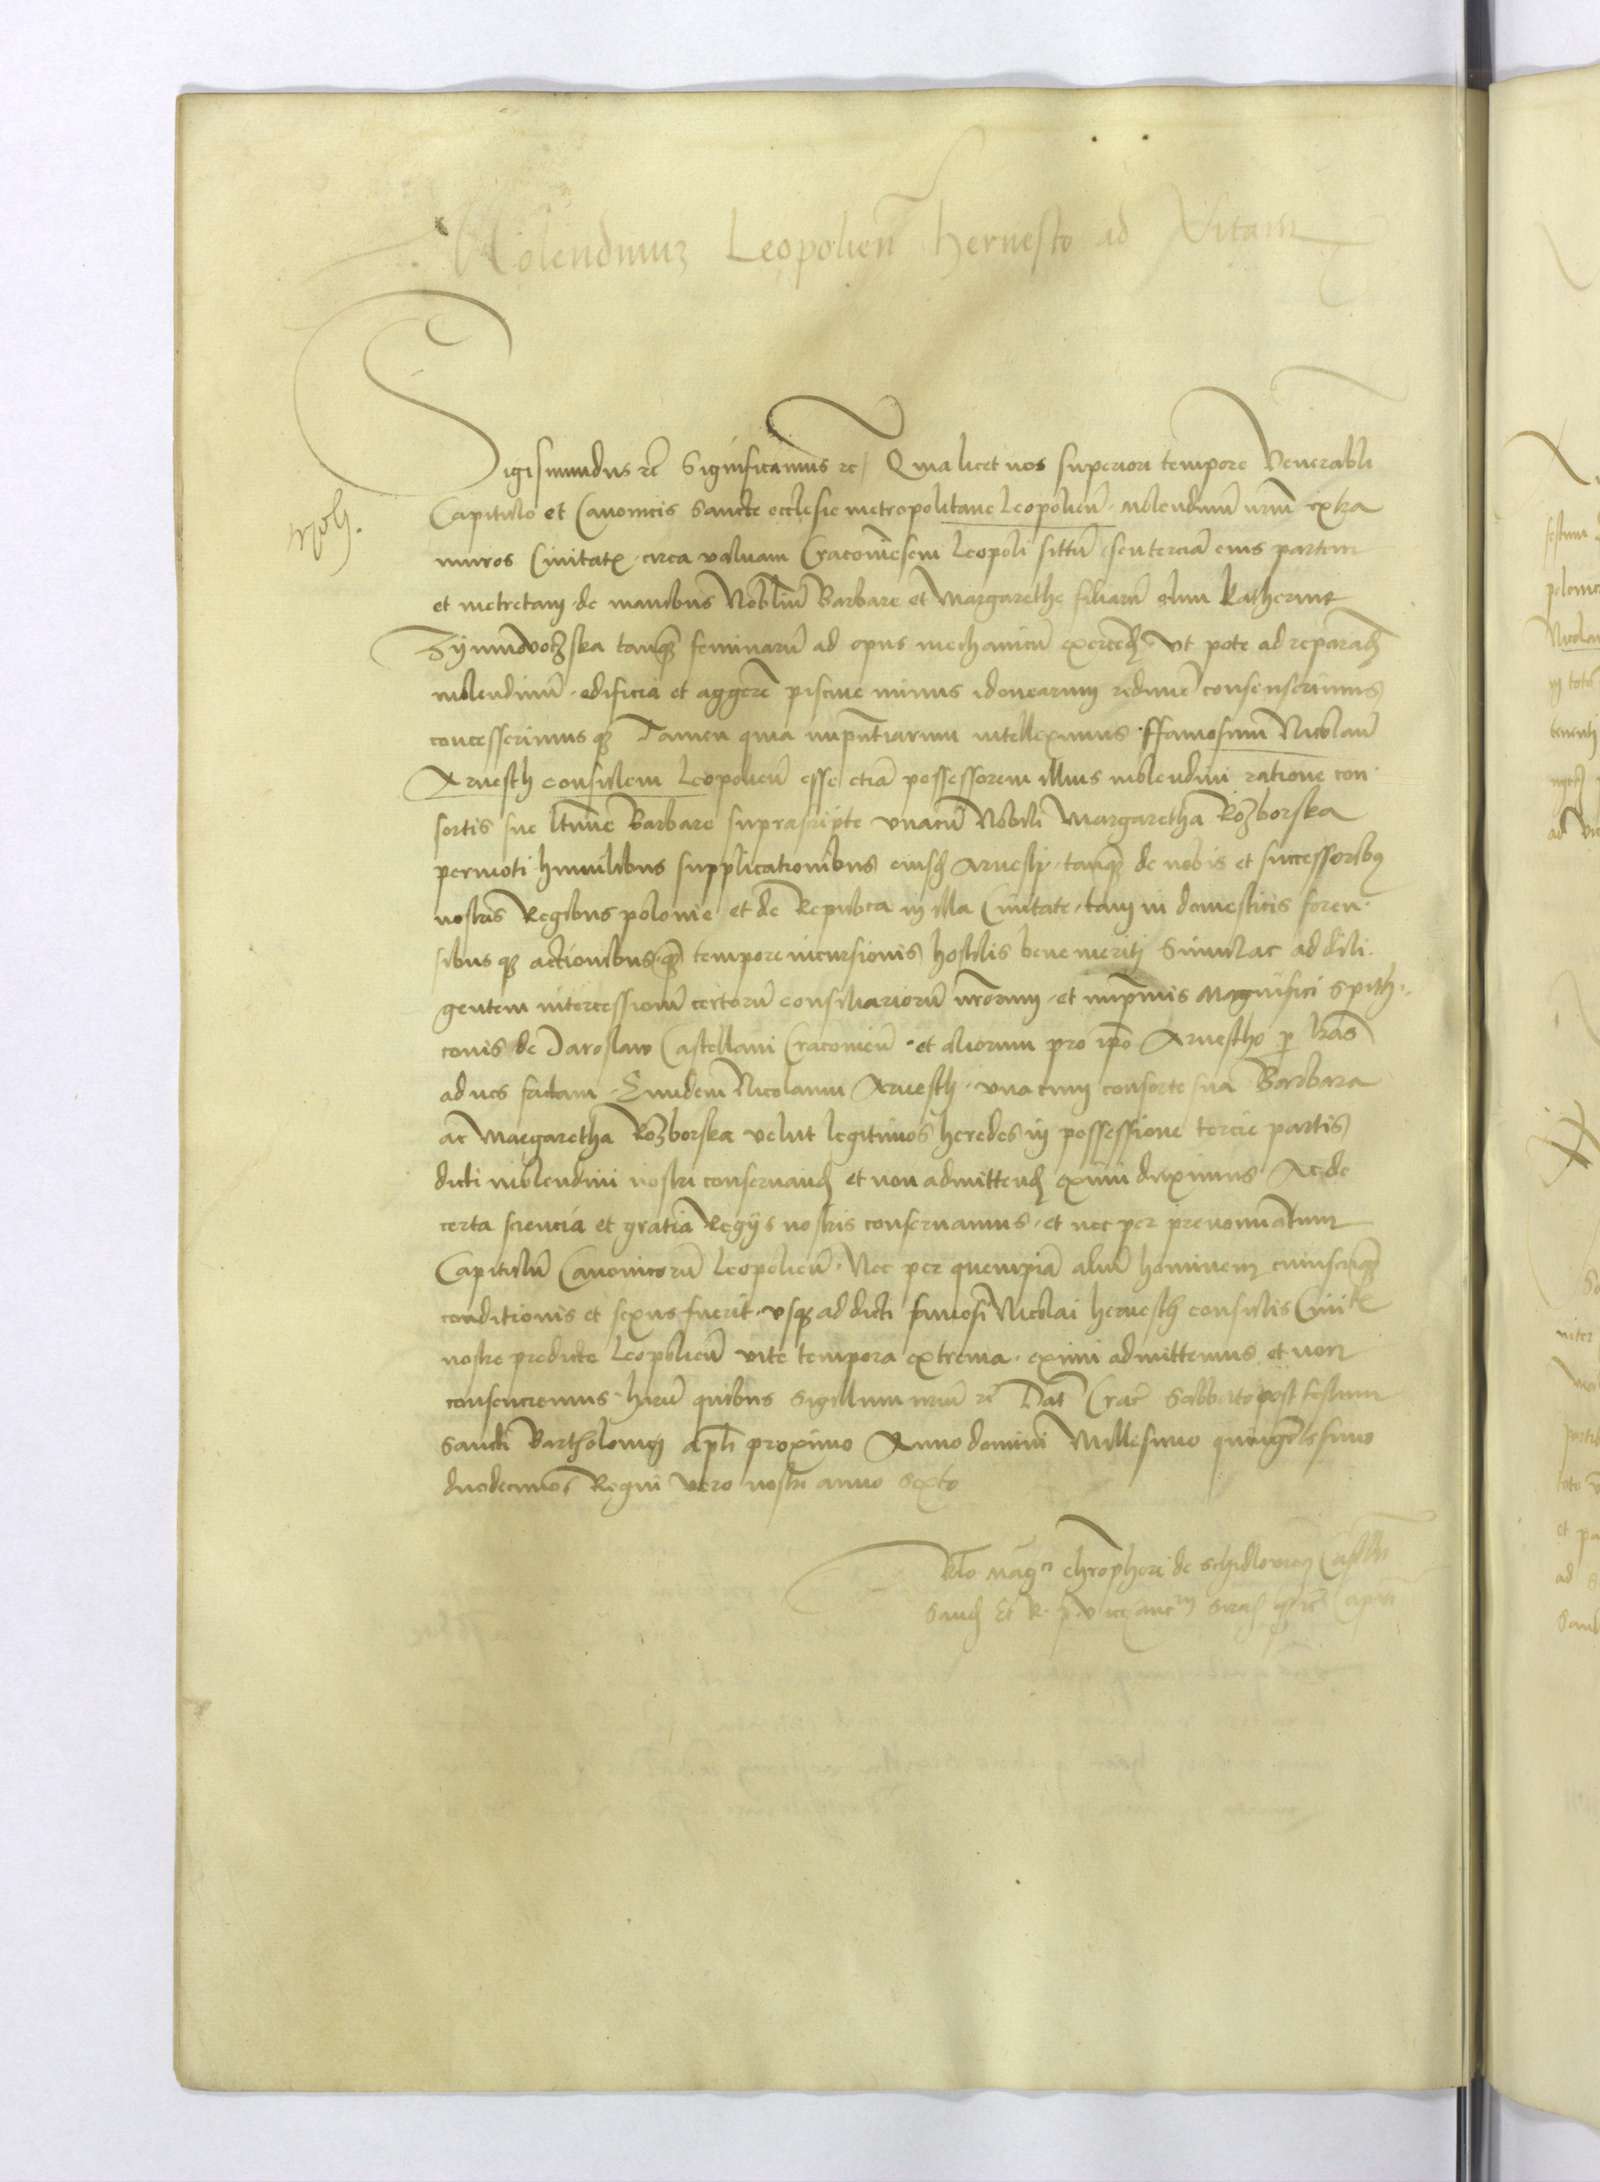 Molendinum Leopolien hernesto ad Vitam
Sigismundus etc Significamus etc / Quia licet nos superiori tempore Venerabli
Capitulo et Canonicis Sancte ecclesie metropolitane Leopolien molendinu nrm extra
muros Civitatis circa valvam Cracoviesem Leopoli situ seu tercia eius partem
et metretam de manibus Nobiliu Barbare et Margarethe filiaru olim Katherine
tanq feminaru ad opus mechanicu exercend ut pote ad reparand
molendinu edificia et aggere piscine minus idonearum redime consenserimus
concesserimusq Tamen quia intelleximus ffamosum Nicolau
Arnesth consulem Leopolien esse etia possessorem illius molendini ratione con
sortis sue Barbare suprascripte unacu Nobili Margaretha Rozborska
permoti humilibus supplicationibus eiusd Arnesth tanq de nobis et successoribus
nostris Regibus polonie et de Republica in illa Civitate tam in domesticis foren
sibusq actionibus q tempore incursionis hostilis bene meriti Simulac ad dili
gentem intercessione certoru consiliarioru nrorum et inprimis Magnifici Spith
conis de Jaroslaw Castellani Cracovien et aliorum pro ipo Arnestho p lras
ad nos factam Eundem Nicolaum Arnesth una cum consorte sua Barbara
ac Margaretha Rozborska velut legitimos heredes in possessione tercie partis
dicti molendini nostri conservand et non admittend eximi duximus Ac de
certa sciencia et gratia Regiis nostris conservamus et nec per prenominatum
Capitulu Canonicoru Leopolien Nec per quempia aliu hominem cuiuscuq
conditionis et sexus fuerit usq ad dicti famosi Nicolai hernesth consulis Civitatis
nostre predicte Leopolien vite tempora extrema eximi admittemus et non
consenciemus haru quibus Sigillum nrm etc Dat Crac Sabbato post festum
Sancti Bartholomei apli proximo Anno domini Millesimo quingetesimo
duodecimo Regni vero nostri anno Sexto
Rlo Mag chrophori de Schidloviecz Castlni